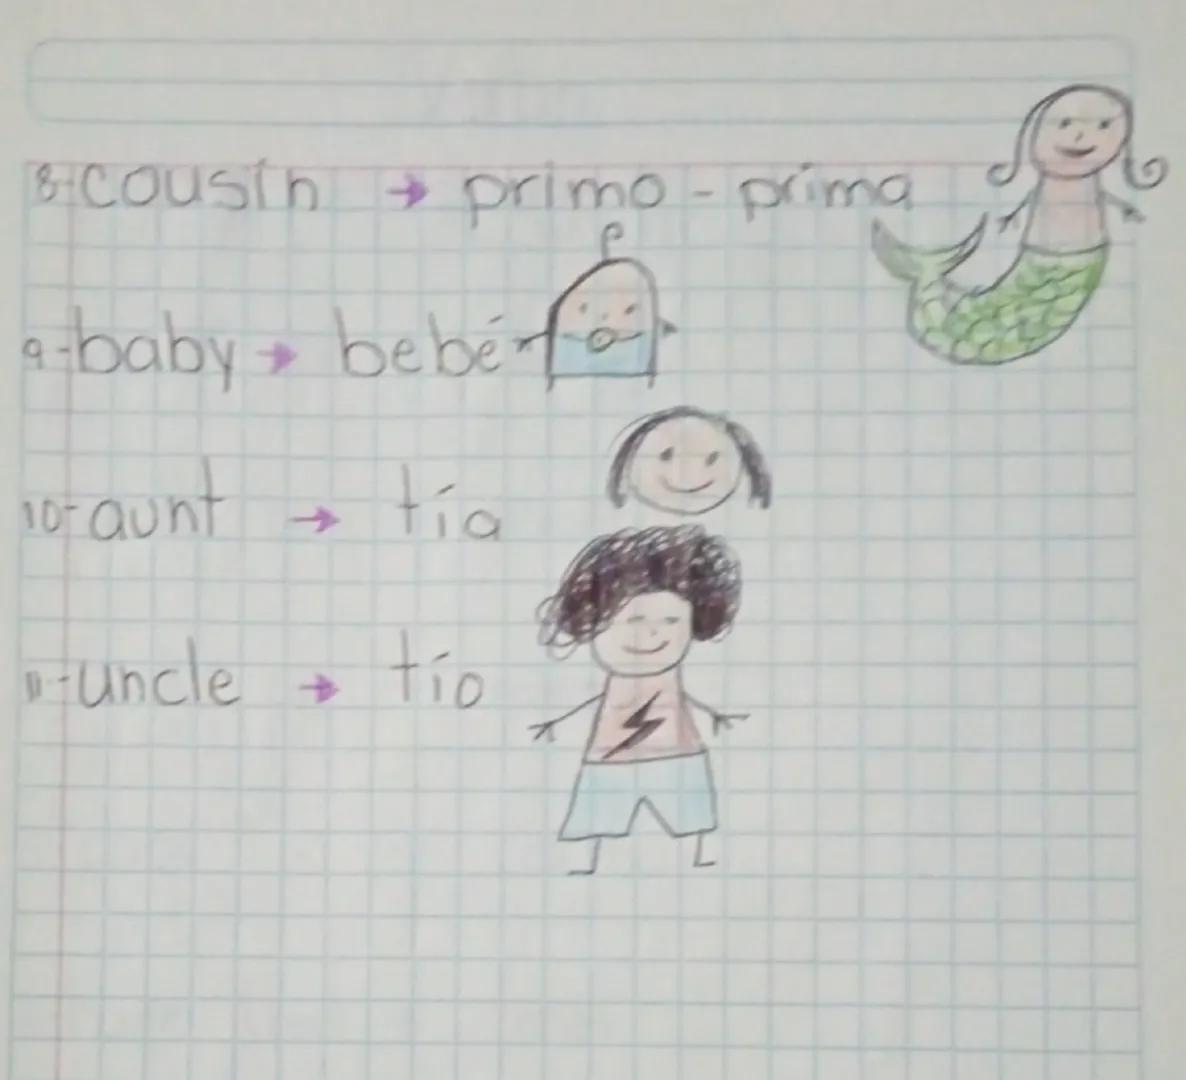 8-cousin → primo - prima
9-baby → bebé
10-aunt → tía
11-uncle → tío